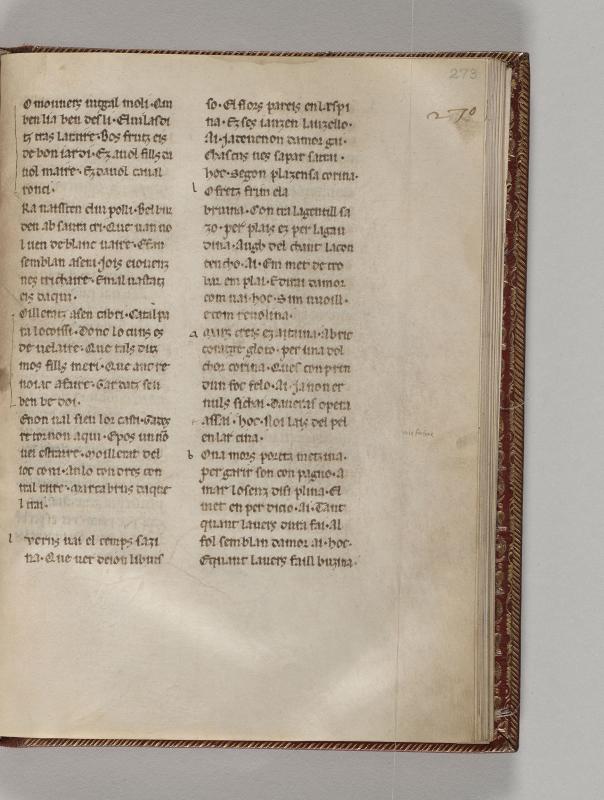 273
270
O mouniers iutgal moli· Qui
ben lia ben desli· El uilas di
tz tras lararire· Bos frutz eis
de bon iardi· Ez auol fills da
uol maire· Ez dauol caual
ronci·
Ra naisson dui polli· Bel bur
den ab saura cri· Que uan uo
l uen de blanc uaire· E fan
semblan aseri· Jois e iouenz
nes trichaire· E maluastatz
eis daqui·
Oilleratz asen cabri·
ta lo coissi· Donc lo cuns es
de uelaire· Que tals ditz
mos fills meri· Que anc re
noi ac afaire· Gardatz sen
ben bedoi·
E non ual sieu lor casti·
retornon aqui· E pos un nō
uei estraire· Moillerat del
ioc coni· an lo con dres con
tral taire· Marcabrus daque
l trai·
l uerns uai el temps saizi
na· Que uet de lon libuis
so· El flors pareis en lespi
na· Ez ses iauzen lauzello·
Ai· Ja ueuenon damor gai·
Chascus ues sa par satrai·
hoc· Segon plazensa corina·
l O fretz frim e la
bruina· Contra la gentill sa
zo· per plais ez per lagau
dina· Aug del chant la con
tencho· Ai· E m met de tro
bar em plai· E dirai damor
com uai· hoc· S im uuoill·
e com reuolina·
a mors creis ez aitaina· ab ric
coratge gloto· per una dol
chor corina· Ques com prin
dun foc felo· Ai· ja non er
nuls si chai· Daueras o per a
assai· hoc· Noi lais del pel
en la
b Ona mors porta metzina·
per garir son conpagno· A
mar losenz disiplina· El
met en perdicio· Ai· Tant
quant lauers dura fai· Al
fol semblan damor· ai· hoc·
E quant lauers faill buzina·